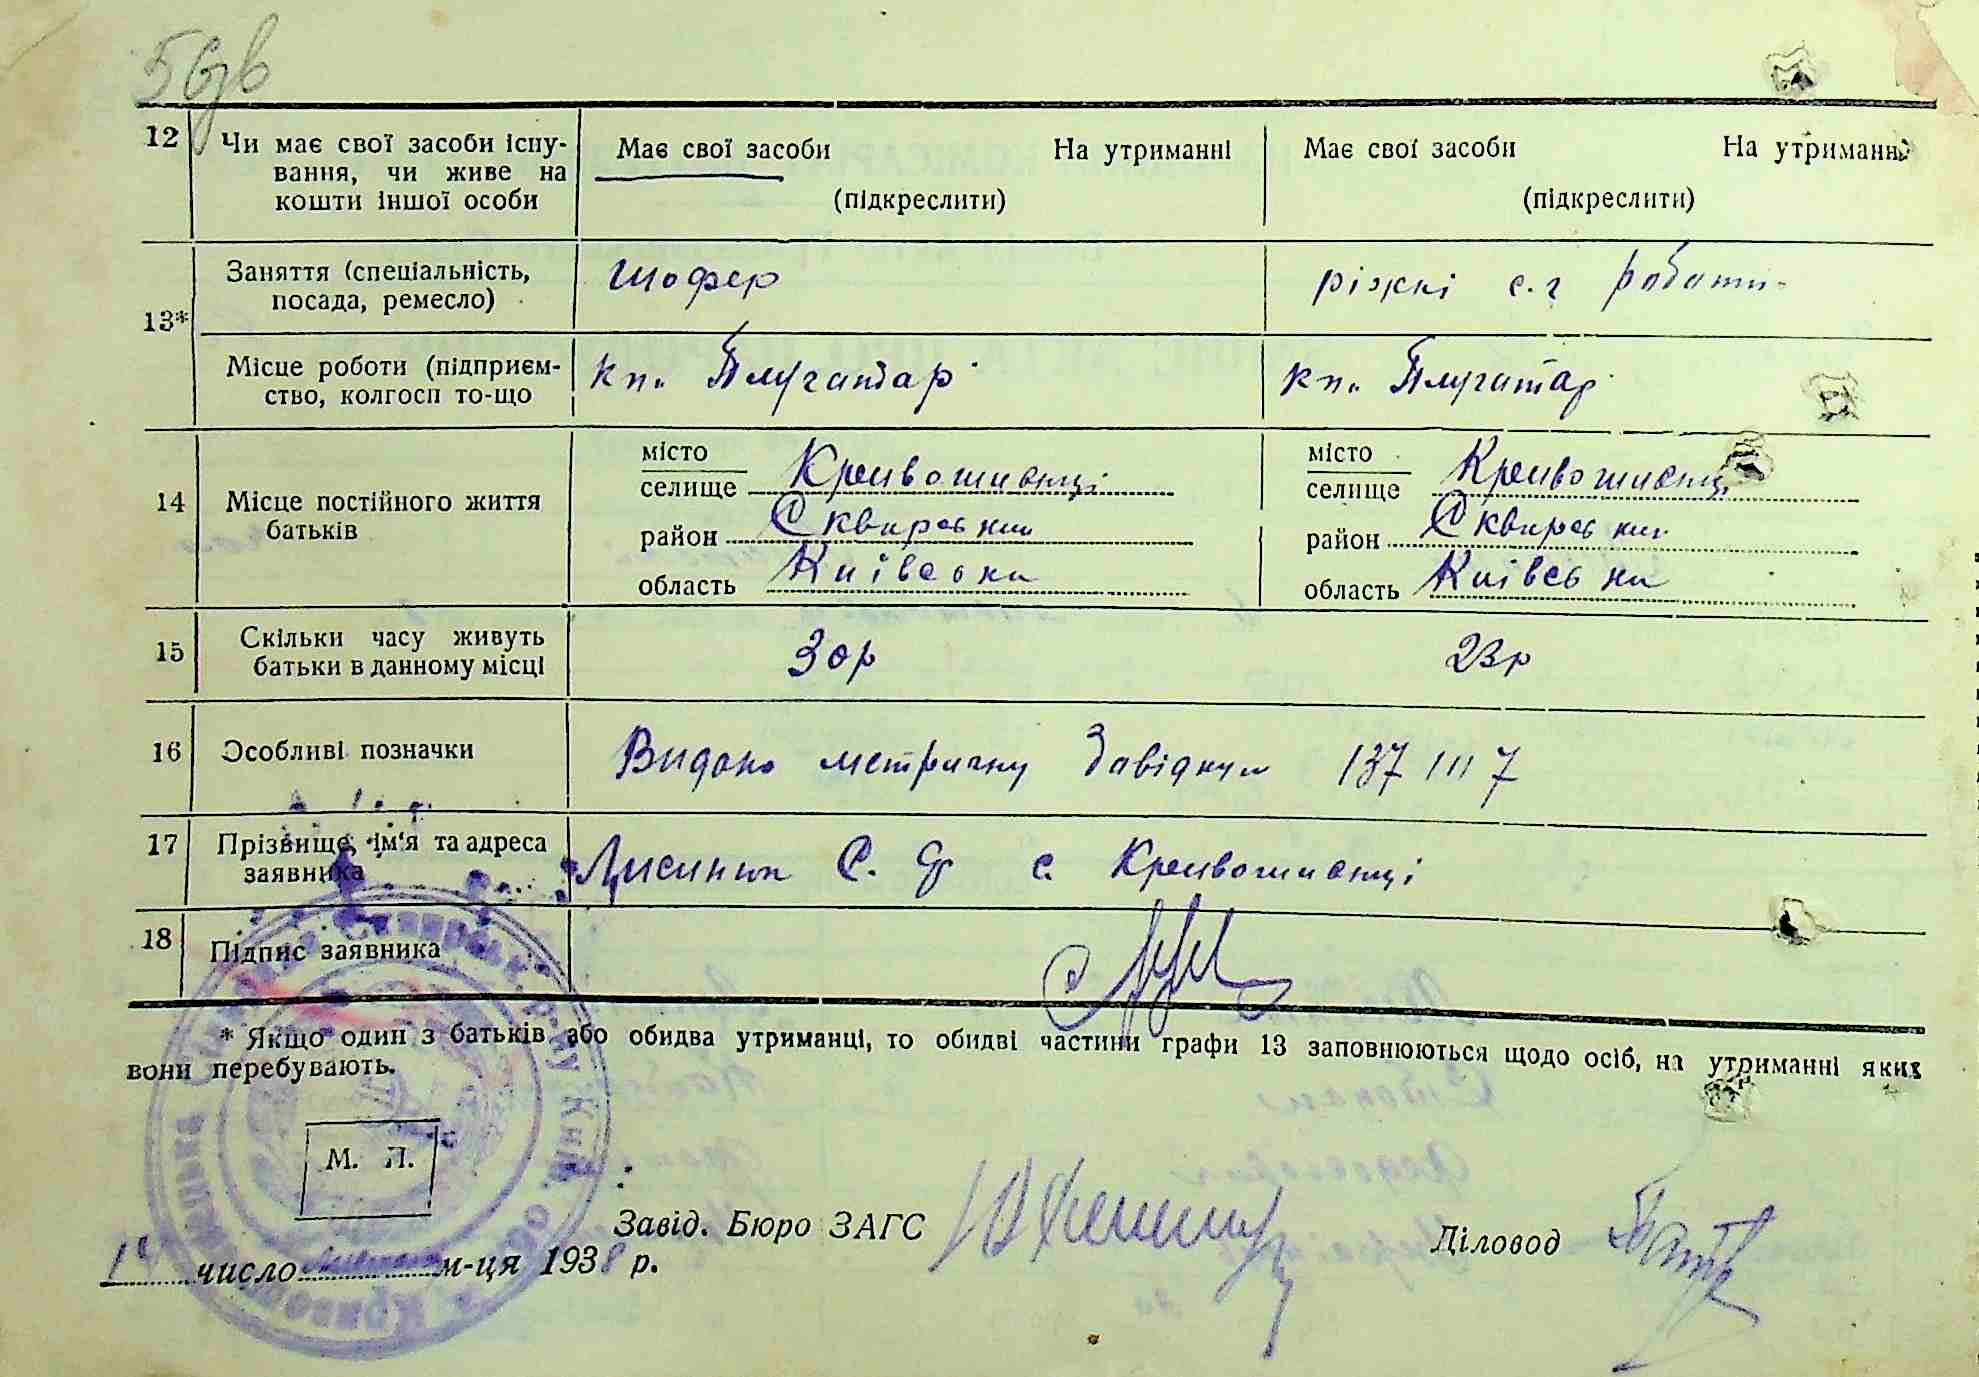 12
Чи має свої засоби існу-
вання, чи живе на
кошти іншої особи
Має свої засоби На утриманні
(підкреслити)
Має свої засоби На утриманні
(підкреслити)
13*
Заняття (спеціальність,
посада, ремесло)
шофер
ріжні с.г роботи
Місце роботи (підприєм-
ство, колгосп то-що
кп. Плугатар
кп. Плугатар
14
Місце постійного життя
батьків
місто
селище Кривошиєнці
район Сквирський
область Київська
місто
селище Кривошиєнці
район Сквирський
область Київська
15
Скільки часу живуть
батьки в данному місці
30р
23р
16
Особливі позначки
Видано метричну 137 7
17
Прізвище, ім'я та адреса
заявника
С. с. Кривошиєнці
18
Підпис заявника
* Якщо один з батьків або обидва утриманці, то обидві частини графи 13 заповнюються щодо осіб, на утриманні яких
вони перебувають.
М. П.
Завід. Бюро ЗАГС
Діловод
число м-ця 1938 р.